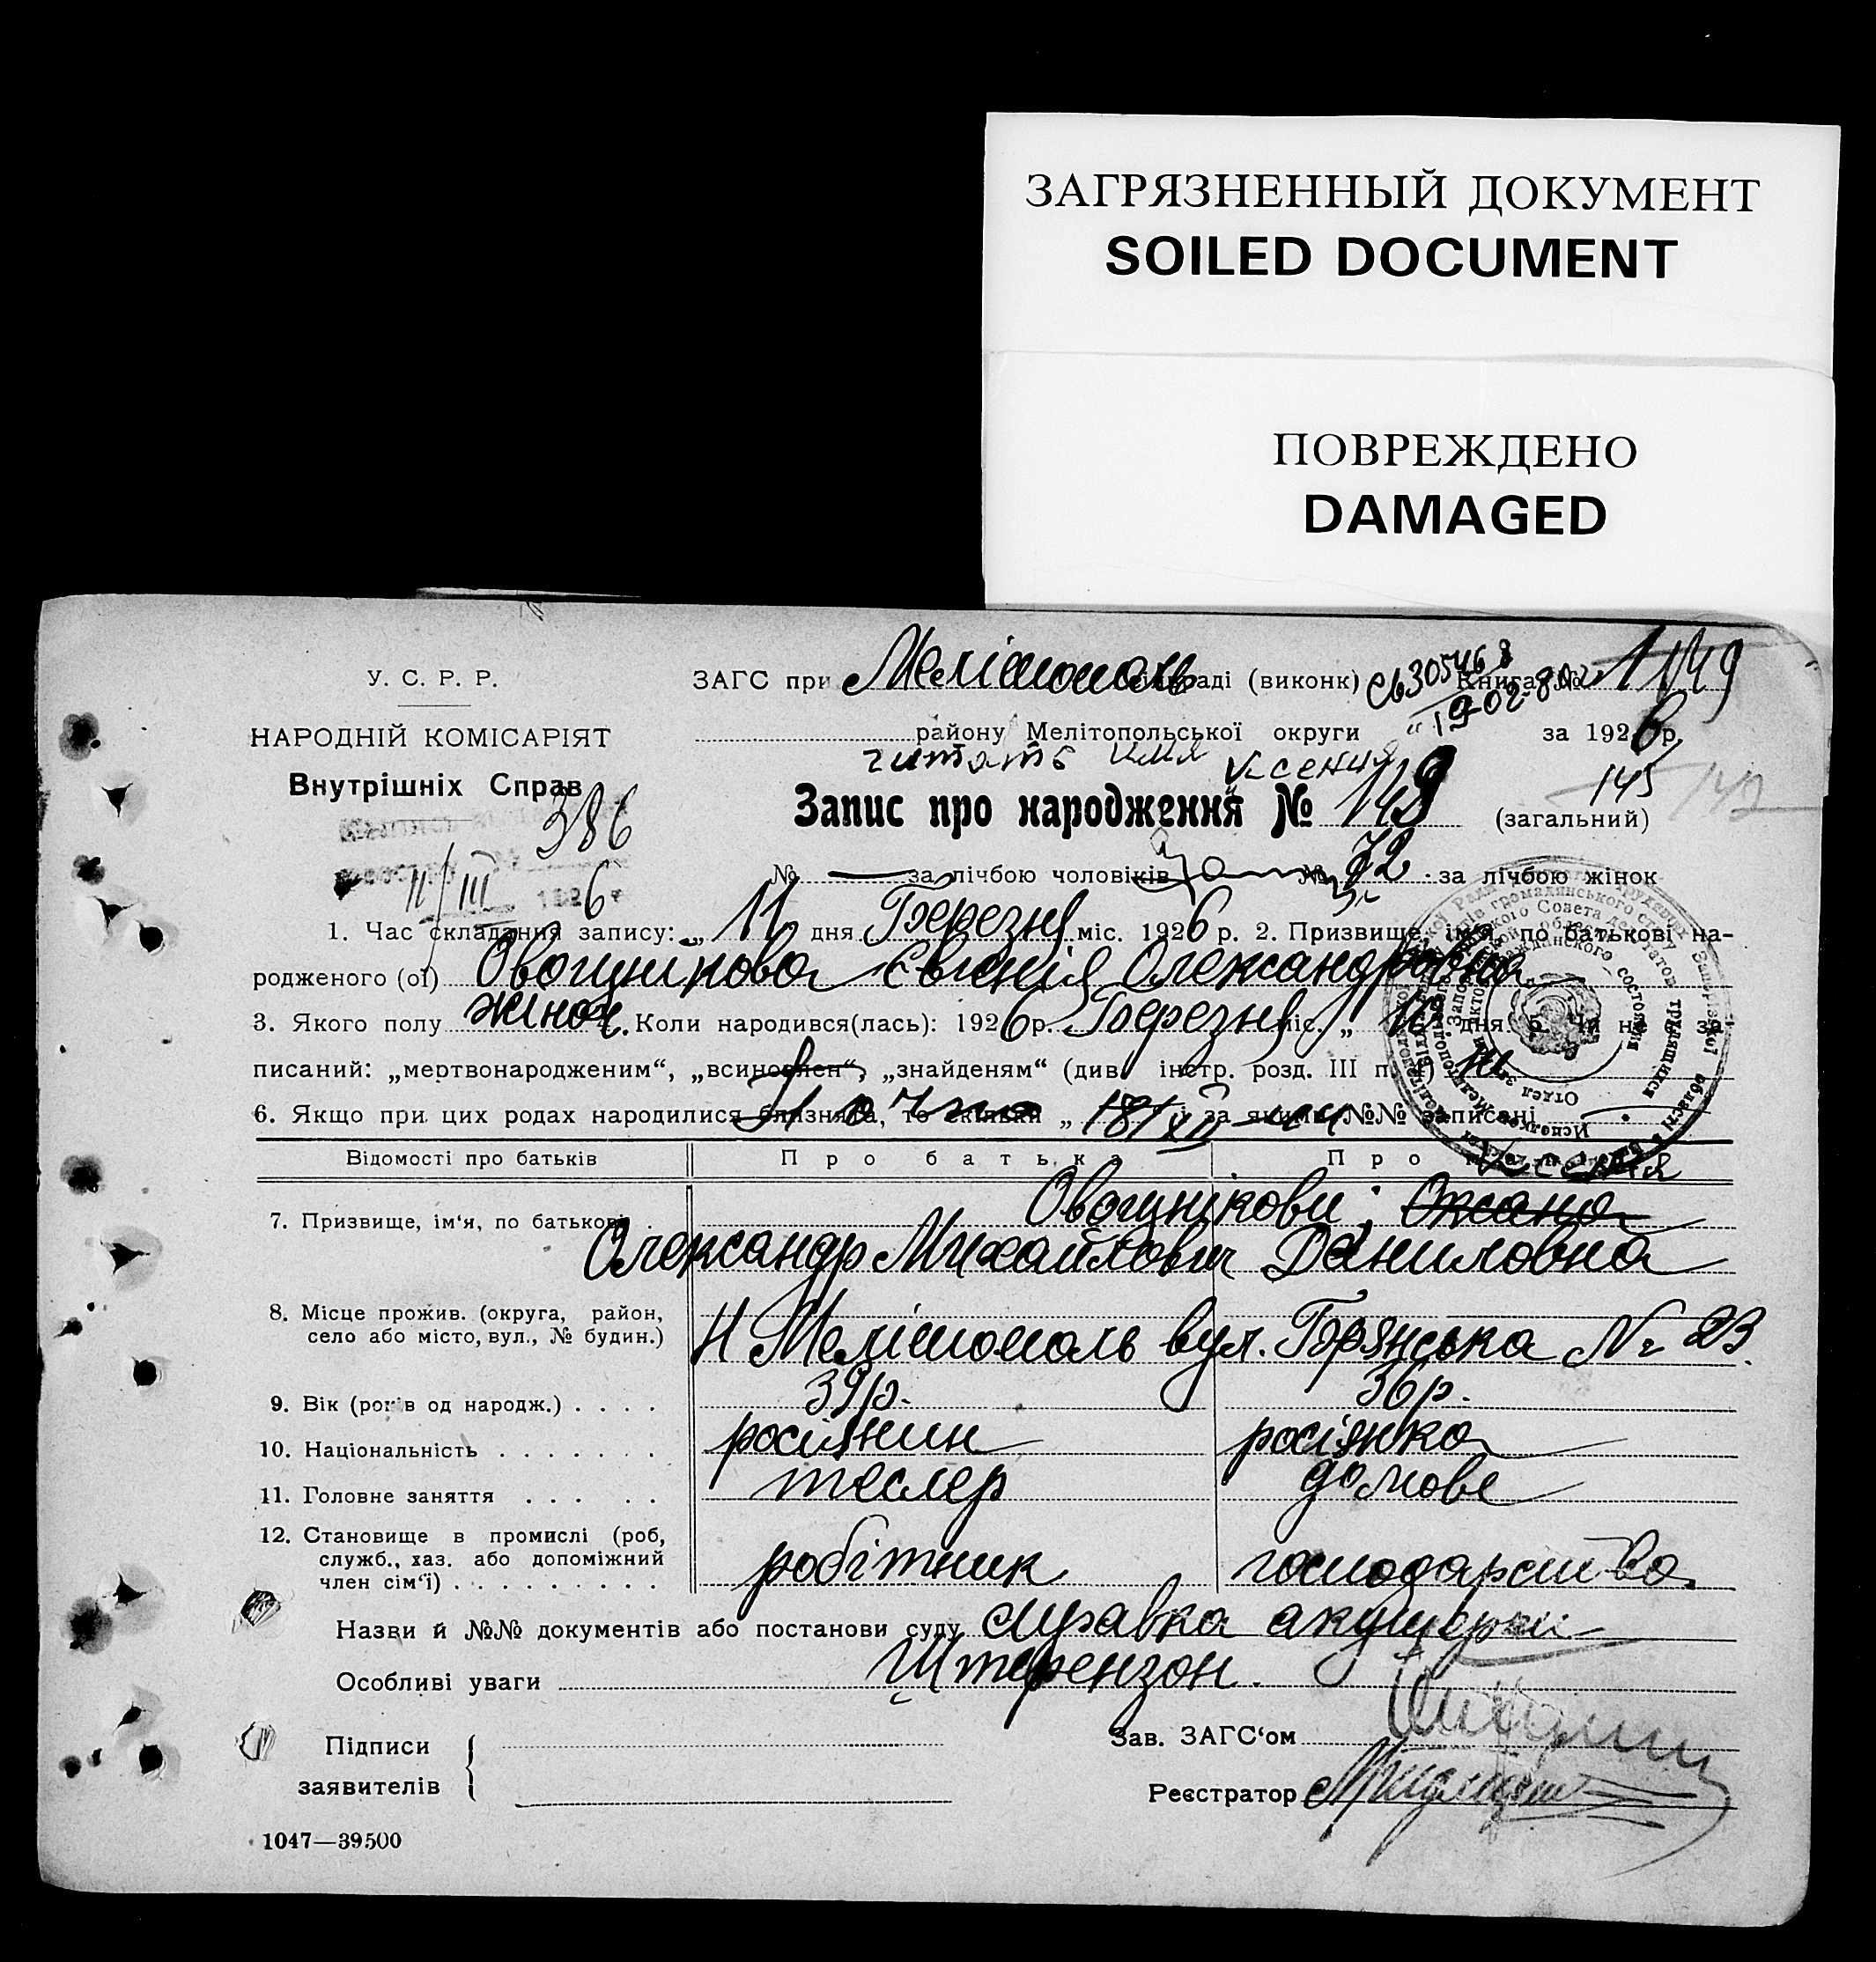 ЗАГРЯЗНЕННЫЙ ДОКУМЕНТ
SOILED DOCUMENT
ПОВРЕЖДЕНО
DAMAGED
У. С. Р. Р.
НАРОДНІЙ КОМІСАРІЯТ
Внутрішніх Справ
386
11/III 1926
ЗАГС при Мелітополь раді (виконк) Книга №
району Мелітопольської округи за 1926 р.
читать имя Ксения
Запис про народження № 149 (загальний)
145
142
№ — за лічбою чоловіків № 72 за лічбою жінок
1. Час складання запису: „ 11 дня Березня міс. 1926 р. 2. Призвище, імя, по батькові на-
родженого (ої) Овощнікова Євгенія Олександровна
3. Якого полу жіноч. 4. Коли народився(лась): 1926 р. Березня міс. „ дня. 5. Чи не за-
писаний: „мертвонародженим“, „всиновлен“, „знайденям“ (див. інстр. розд. III п. ) ні
6. Якщо при цих родах народилися близнята, то скільки „ і за якими №№ записані
Відомості про батьків Про батька Про
Ксения
7. Призвище, ім‘я, по батькові Овощнікови; Оксана
Олександр Михайлович Даниловна
8. Місце прожив. (округа, район,
село або місто, вул., № будин.) Мелітополь вул. Брянська № 23.
9. Вік (років од народж.) . . . . 39 р. 36 р.
10. Національність . . . . . . . росіянин росіянка
11. Головне заняття . . . . . тесляр домове
12. Становище в промислі (роб,
служб., хаз. або допоміжний
член сім‘ї) . . . . . . . . . робітник господарство.
Назви й №№ документів або постанови суду справка акушерки
Особливі уваги Штерензон.
Підписи
заявителів
Зав. ЗАГС‘ом
Реєстратор
1047—39500